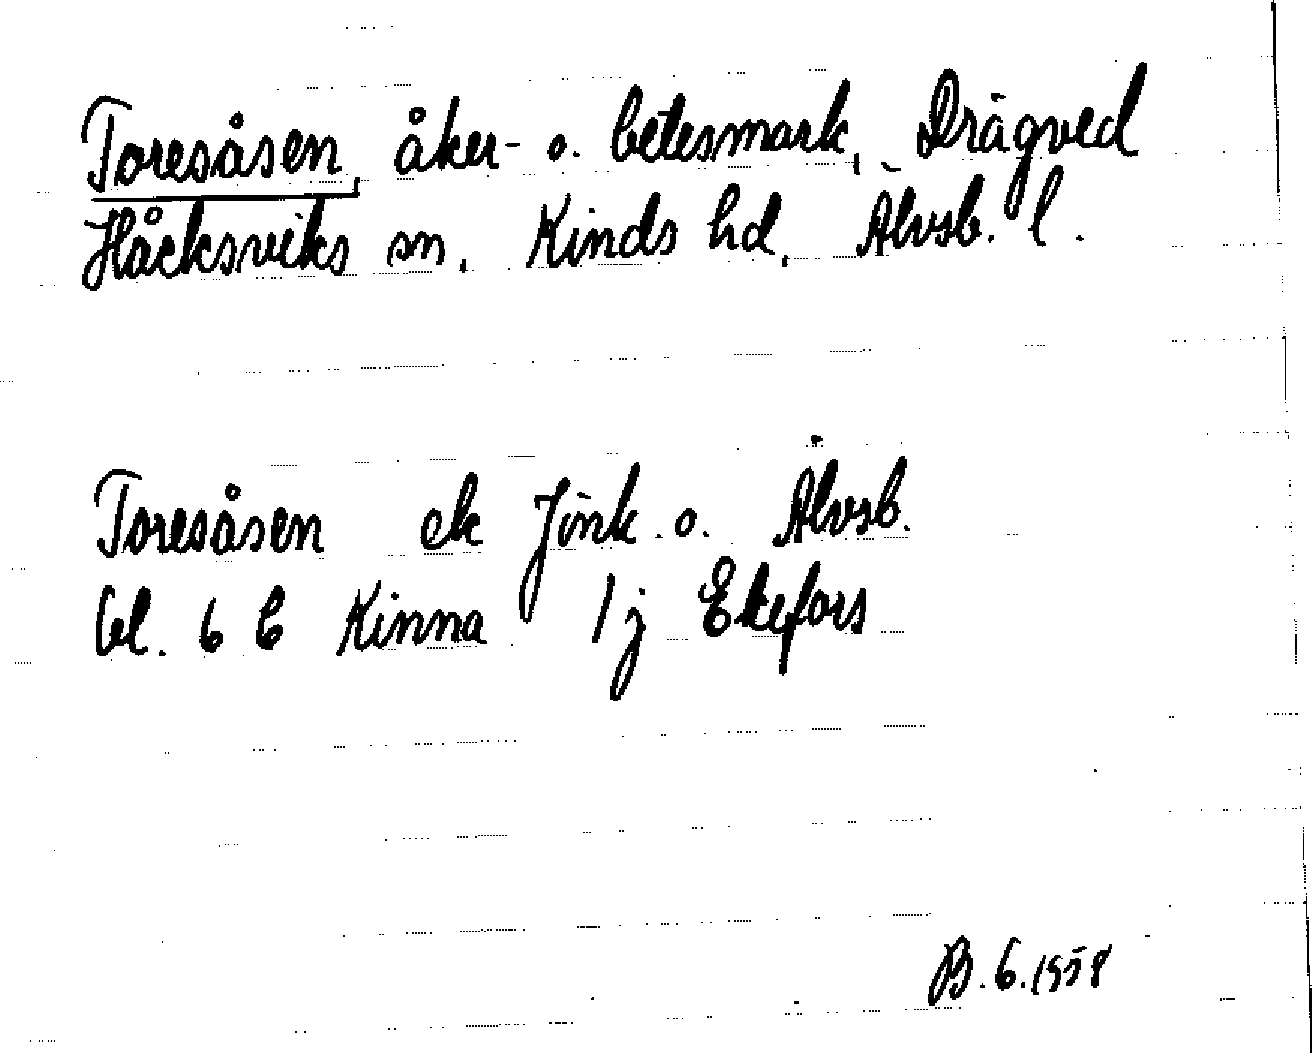 Toresåsen, åker- o. betesmark, Drägved
Håcksviks sn, Kinds hd, Älvsb. l.
Toresåsen ek Jönk. o. Älvsb.
bl. 6 C Kinna 1j Ekefors
B. 6. 1958